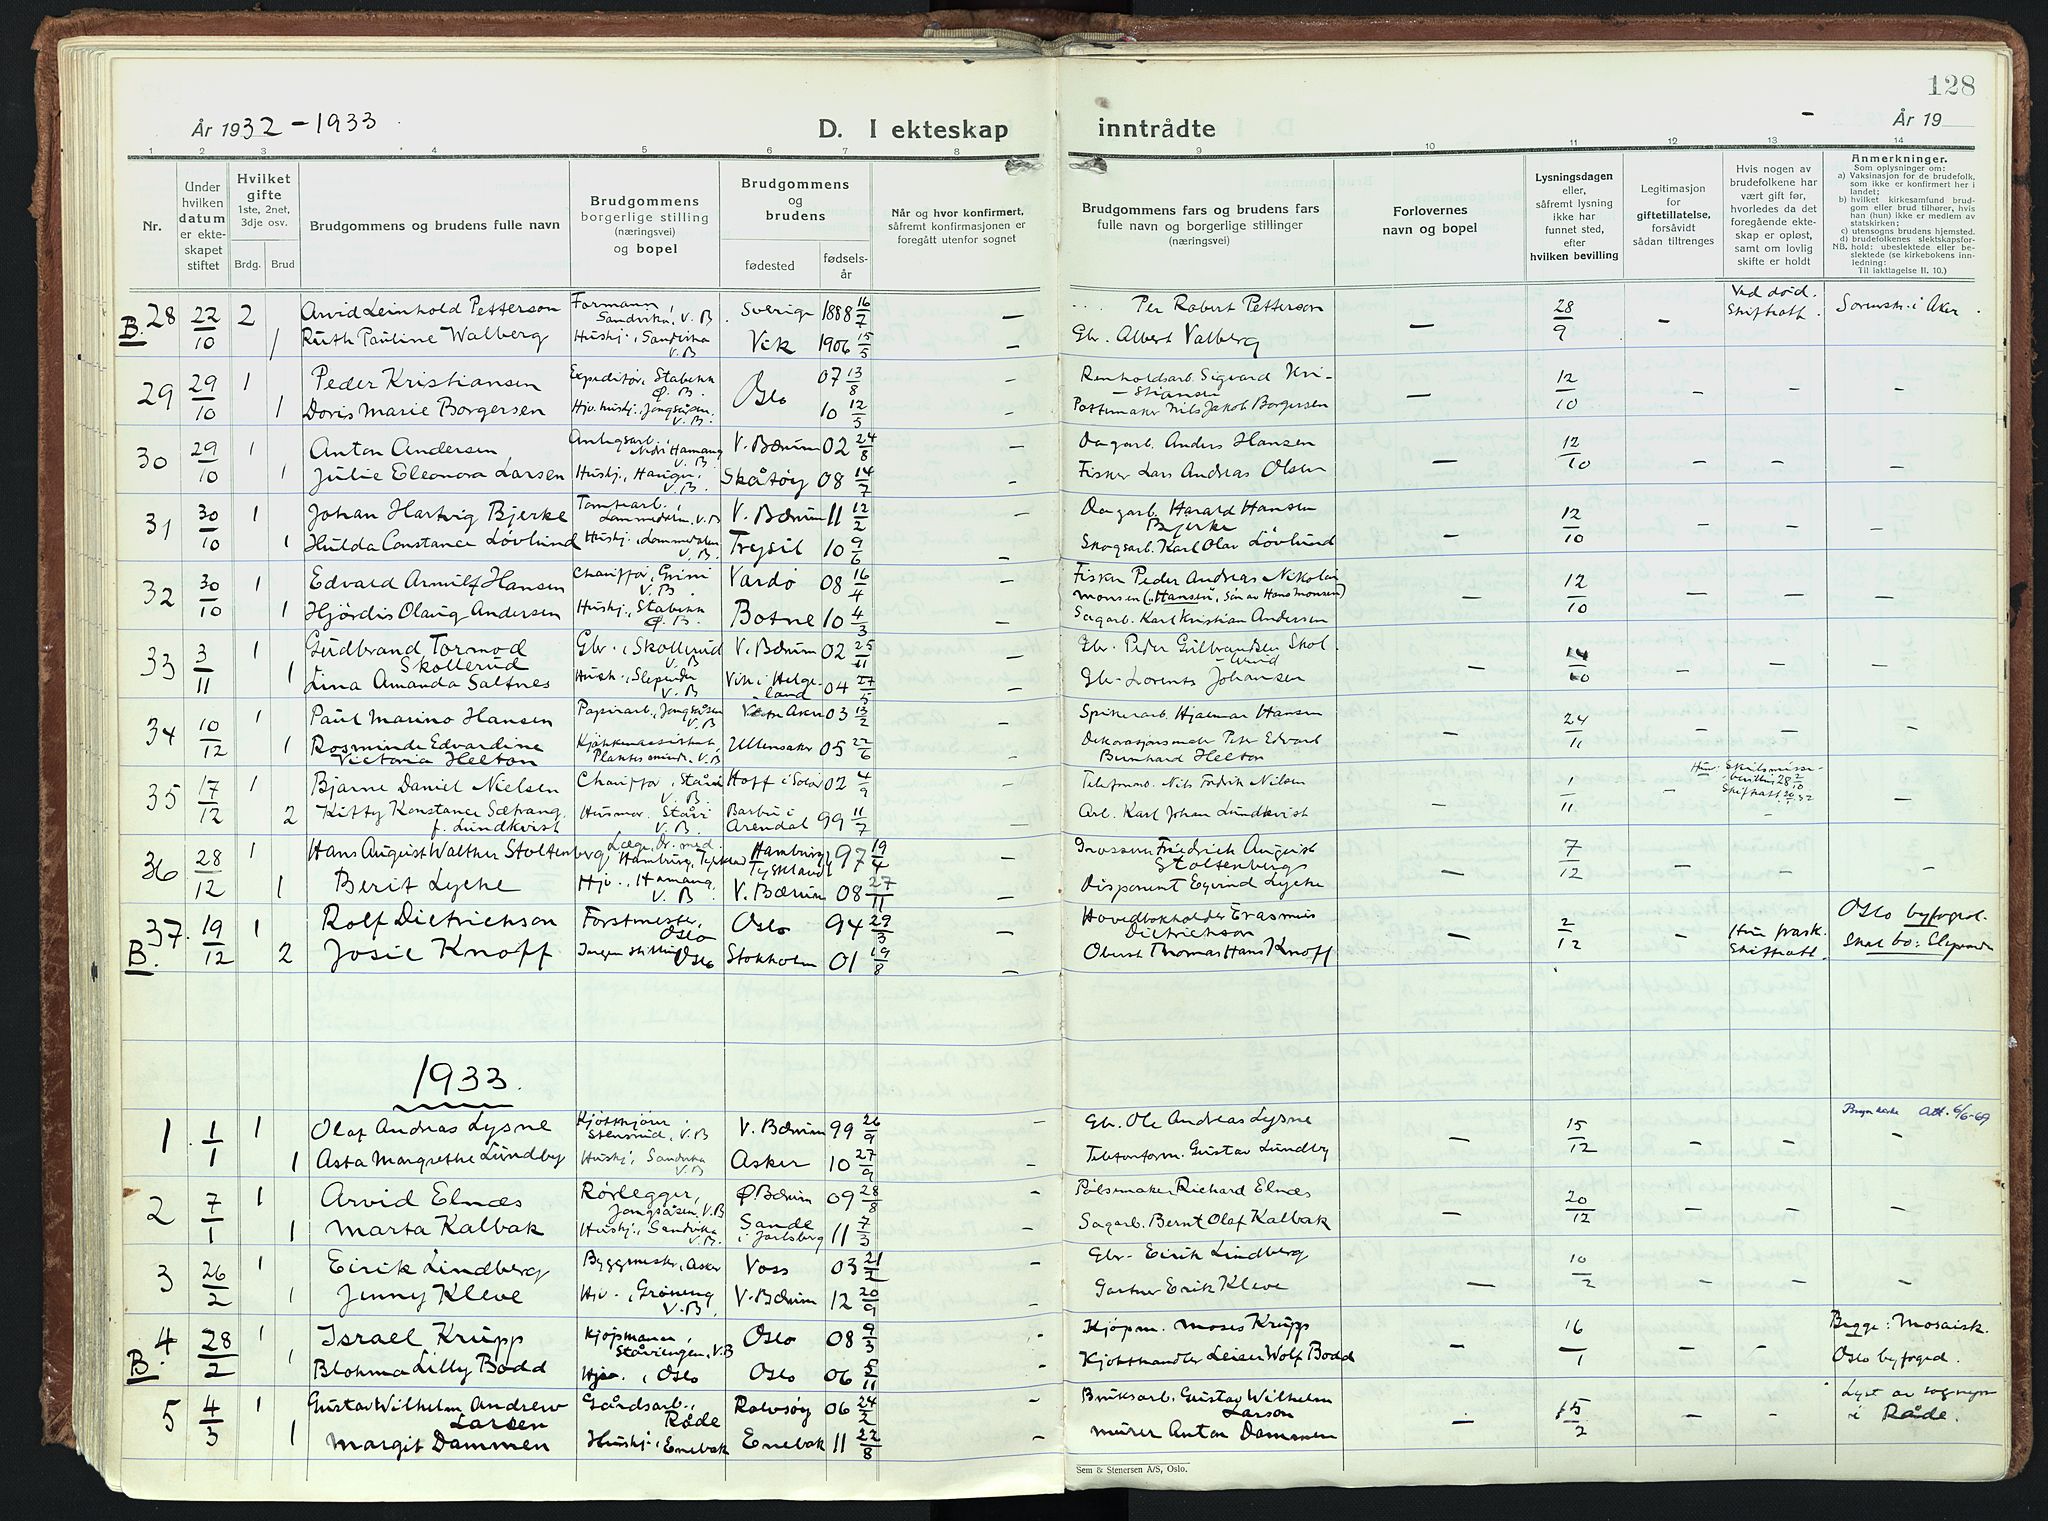 128
År 1932-1933
D. I ekteskap inntrådte
År 19
1 2 3 4 5 6 7 8 9 10 11 12 13 14
Nr.
Under hvilken datum er ekteskapet stiftet
Hvilket gifte 1ste, 2net, 3dje osv.
Brdg. Brud
Brudgommens og brudens fulle navn
Brudgommens borgerlige stilling (næringsvei) og bopel
Brudgommens og brudens
fødested
fødselsår
Når og hvor konfirmert, såfremt konfirmasjonen er foregått utenfor sognet
Brudgommens fars og brudens fars fulle navn og borgerlige stillinger (næringsvei)
Forlovernes navn og bopel
Lysningsdagen eller, såfremt lysning ikke har funnet sted, efter hvilken bevilling
Legitimasjon for giftetillatelse, forsåvidt sådan tiltrenges
Hvis nogen av brudefolkene har vært gift før, hvorledes da det foregående ekteskap er opløst, samt om lovlig skifte er holdt
Anmerkninger.
Som oplysninger om:
a) Vaksinasjon for de brudefolk, som ikke er konfirmert her i landet;
b) hvilket kirkesamfund brudgom eller brud tilhører, hvis han (hun) ikke er medlem av statskirken;
c) utensogns brudens hjemsted.
d) brudefolkenes slektskapsforhold: ubeslektede eller beslektede (se kirkebokens innledning:
NB. Til iakttagelse II. 10.)
B. 28 22/10 2 Arvid Leinhold Petterson Formann, Sandvika, V. B. Sverige 1888 16/7 – Per Robert Petterson – 28/9 – Ved död. Skifteatt. Sorenskr. i Aker.
1 Ruth Pauline Walberg Hushj., Sandvika V. B. Vik 1906 15/5 – Gbr. Albert Valberg
29 29/10 1 Peder Kristiansen Expeditør, Stabekk Ø. B. Oslo 07 13/8 – Renholdsarb. Sigvard Kristiansen – 12/10 – – –
1 Doris Marie Borgersen Hjv. hushj., Jongsåsen. V. B. 10 12/5 – Pottemaker Nils Jakob Borgersen
30 29/10 1 Anton Andersen Anlegsarb., Nedr. Hamang V. B. V. Bærum 02 24/8 – Dagarb. Anders Hansen – 12/10 – – –
1 Julie Eleonora Larsen Hushj., Hauger, V. B. Skåtøy 08 14/7 – Fisker Lars Andreas Olsen
31 30/10 1 Johan Hartvig Bjerke Tomtearb., Lommedalen, V. B V. Bærum 11 12/2 Dagarb. Harald Hansen Bjerke – 12/10 – – –
1 Hulda Constance Løvlund Hushj., Lommedalen V. B. Trysil 10 9/6 – Skogsarb. Karl Olav Løvlund
32 30/10 1 Edvard Arnulf Hansen Chauffør, Grini V. B. Vardø 08 16/4 – Fisker Peder Andreas Nikolai Monsen ("Hansen", Sön av Hans Monsen) – 12/10 – – –
1 Hjördis Olaug Andersen Hushj., Stabekk Ø. B. Botne 10 4/3 – Sagarb. Karl Kristian Andersen
33 3/11 1 Gudbrand Tormod Skollerud Gbr., Skollerud V. B V. Bærum 02 25/11 – Gbr. Peder Gulbrandsen Skollerud – 14/10 – – –
1 Lina Amanda Saltnes Hush., Slependen V. B Vik i Helgeland 04 27/5 – Gbr. Lorents Johansen
34 10/12 1 Paul Marino Hansen Papirarb., Jongsåsen V. B Vestre Aker 03 13/2 – Spikerarb. Hjalmar Hansen – 24/11 – – –
1 Rosminde Edvardine Victoria Helton V. B Ullensaker 05 22/6 – Dekorasjonsmaler Peter Edvard Bernhard Helton
35 17/12 1 Bjarne Daniel Nielsen Chauffør, Ståvi V. B. Hoff i Solør 02 4/9 – Nils Fredrik Nilsen – 1/11 – Hun Skilsmissebevilling 28 2/10 Skifteatt. –
2 Kitty Konstance Sætrang f. Lundkvist Husmor. Ståvi V. B. Barbu i Arendal 99 11/7 – Arb. Karl Johan Lundkvist
36 28/12 1 Hans August Walther Stoltenberg, Læge, Dr. med. Hamburg, Tyskland Hamburg Tyskland 97 19/4 Friedrich August Stoltenberg – 7/12 – –
1 Berit Lycke Hjv., Hamang. V. B. V. Bærum 08 27/11 – Disponent Eyvind Lycke
B. 37. 19/12 1 Rolf Dietrichson Forstmester, Oslo Oslo 94 29/3 – Hovedbokholder Erasmus Dietrichson – 2/12 – Hun frask. Skifteatt. Oslo byfogd.
2 Josie Knoff Ingen stilling Oslo Stokholm 01 19/8 – Oberst Thomas Hans Knoff Skal bo: Slependen
1933.
1 1/1 1 Olaf Andreas Lysne Stensrud, V. B V. Bærum 99 26/9 Gbr. Ole Andreas Lysne – 15/12 – – – Att. 6/6-69
1 Asta Margrethe Lundby Hushj., Sandvika V. B. Asker 10 27/9 Telefonform. Gustav Lundby
2 7/1 1 Arvid Elnæs Rørlegger, Jongsåsen. V. B Ø. Bærum 09 28/8 – Pølsemaker Richard Elnæs – 20/12 – – –
1 Marta Kalbak Hushj., Sandvika V. B. Sande i Jarlsberg 11 7/3 – Sagarb. Bernt Olaf Kalbak
3 26/2 1 Eirik Lindberg Byggmester, Asker Voss 03 21/2 – Gbr. Eirik Lindberg – 10/2 – – –
1 Jenny Kleve Hjv., Grøneng V. B. V. Bærum 12 20/9 – Gartner Erik Kleve
B. 4 28/2 1 Israel Krupp Kjøpmann, Ståviengen, V. B Oslo 08 9/3 – Kjøpm. Moses Krupp – 16/1 – – Begge: Mosaisk.
1 Blohma Lilly Bodd Hjv., Oslo Oslo 06 5/11 – Kjøtthandler Leiser Wolf Bodd Oslo byfogd.
5 4/3 1 Gustav Wilhelm Andrew Larsen Gårdsarb., Råde Rolvsøy 06 24/2 – Bruksarb. Gustav Wilhelm Larson – 15/2 – – Lyst av sognepr. i Råde.
1 Margit Dammen Hushj., Enebak Enebak 11 22/8 – Murer Anton Dammen
Sem & Stenersen A/S, Oslo.